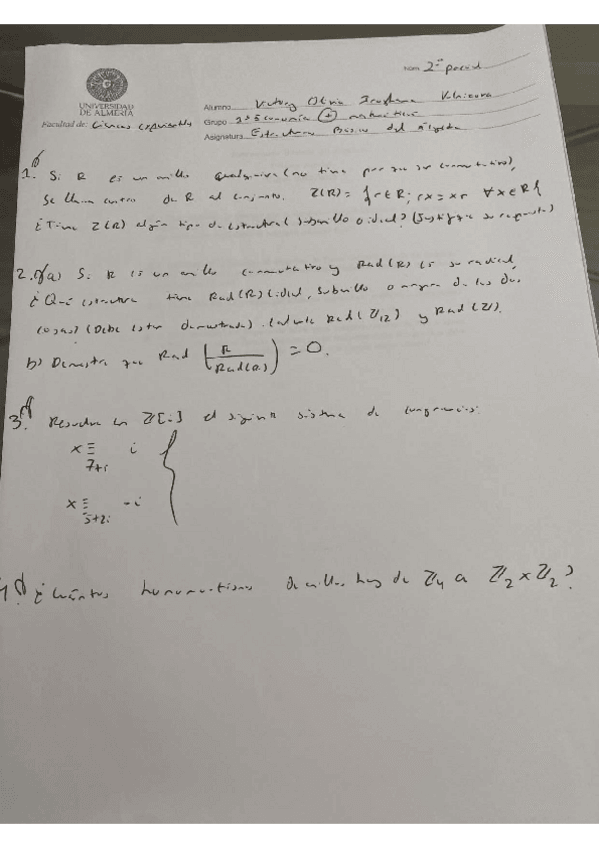 UNIVERSIDAD
DE ALMERÍA
Nota 2º parcial
Alumno
Facultad de: Ciencias Experimentales
Grupo 2º Economía + matemáticas
Asignatura Estructuras Básicas del Álgebra
1. Si R es un anillo cualquiera (no tiene por que ser conmutativo),
se llama centro de R al conjunto. Z(R) = {r∈R; rx = xr ∀x∈R}
¿Tiene Z(R) algún tipo de estructura (subanillo o ideal? (Justifique su respuesta)
2. a) Si R es un anillo conmutativo y Rad(R) es su radical
¿Qué estructura tiene Rad(R) (ideal, subanillo o ninguna de las dos
cosas) (Debe estar demostrado). Calcule Rad(ℤ12) y Rad(ℤ).
b) Demuestra que Rad (R/Rad(R)) = 0.
3. Resuelve en ℤ[i] el siguiente sistema de congruencias:
x ≡ i
7+i
x ≡ -i
5+2i
¿Cuántos homomorfismos de anillos hay de ℤ4 a ℤ2 x ℤ2?